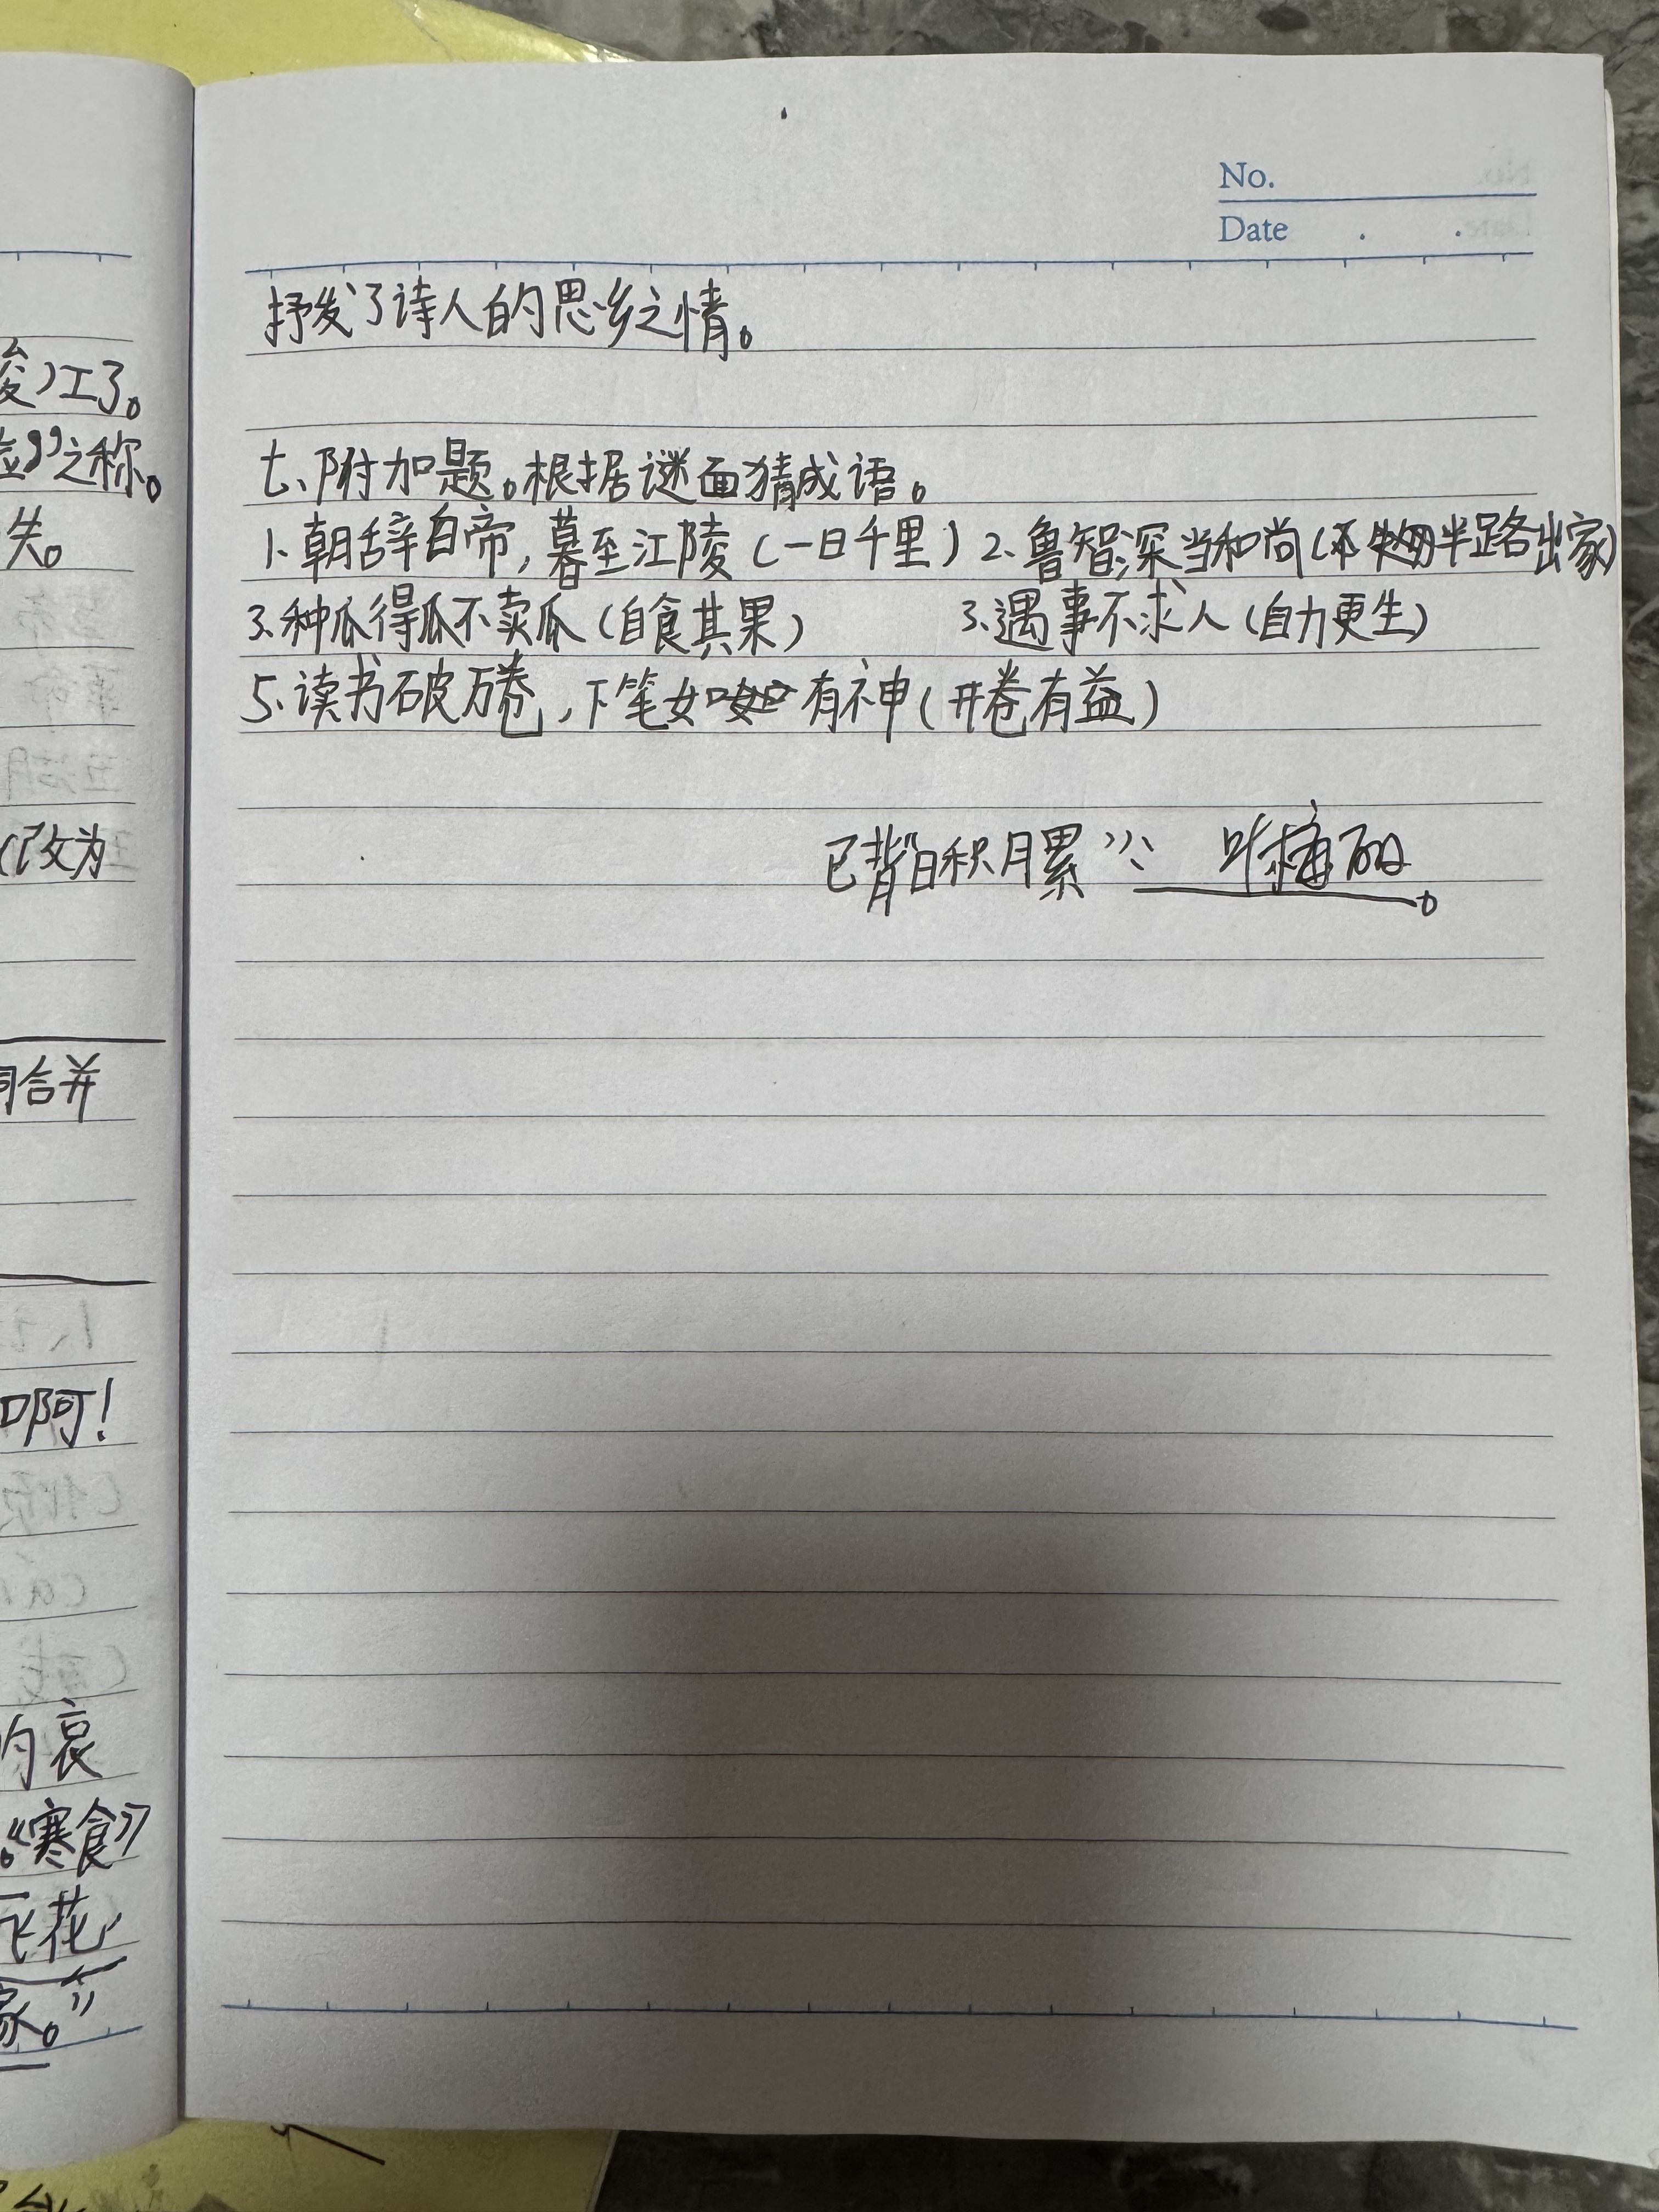 No.
Date . .
抒发了诗人的思乡之情。
七、附加题。根据谜面猜成语。
1、朝辞白帝，暮至江陵（一日千里） 2、鲁智深当和尚（半路出家）
3、种瓜得瓜不卖瓜（自食其果） 3、遇事不求人（自力更生）
5、读书破万卷，下笔如有神（开卷有益）
已背“日积月累”：
）工了。
”之称。
失。
（改为
合并
啊！
哀
《寒食》
飞花
家。”